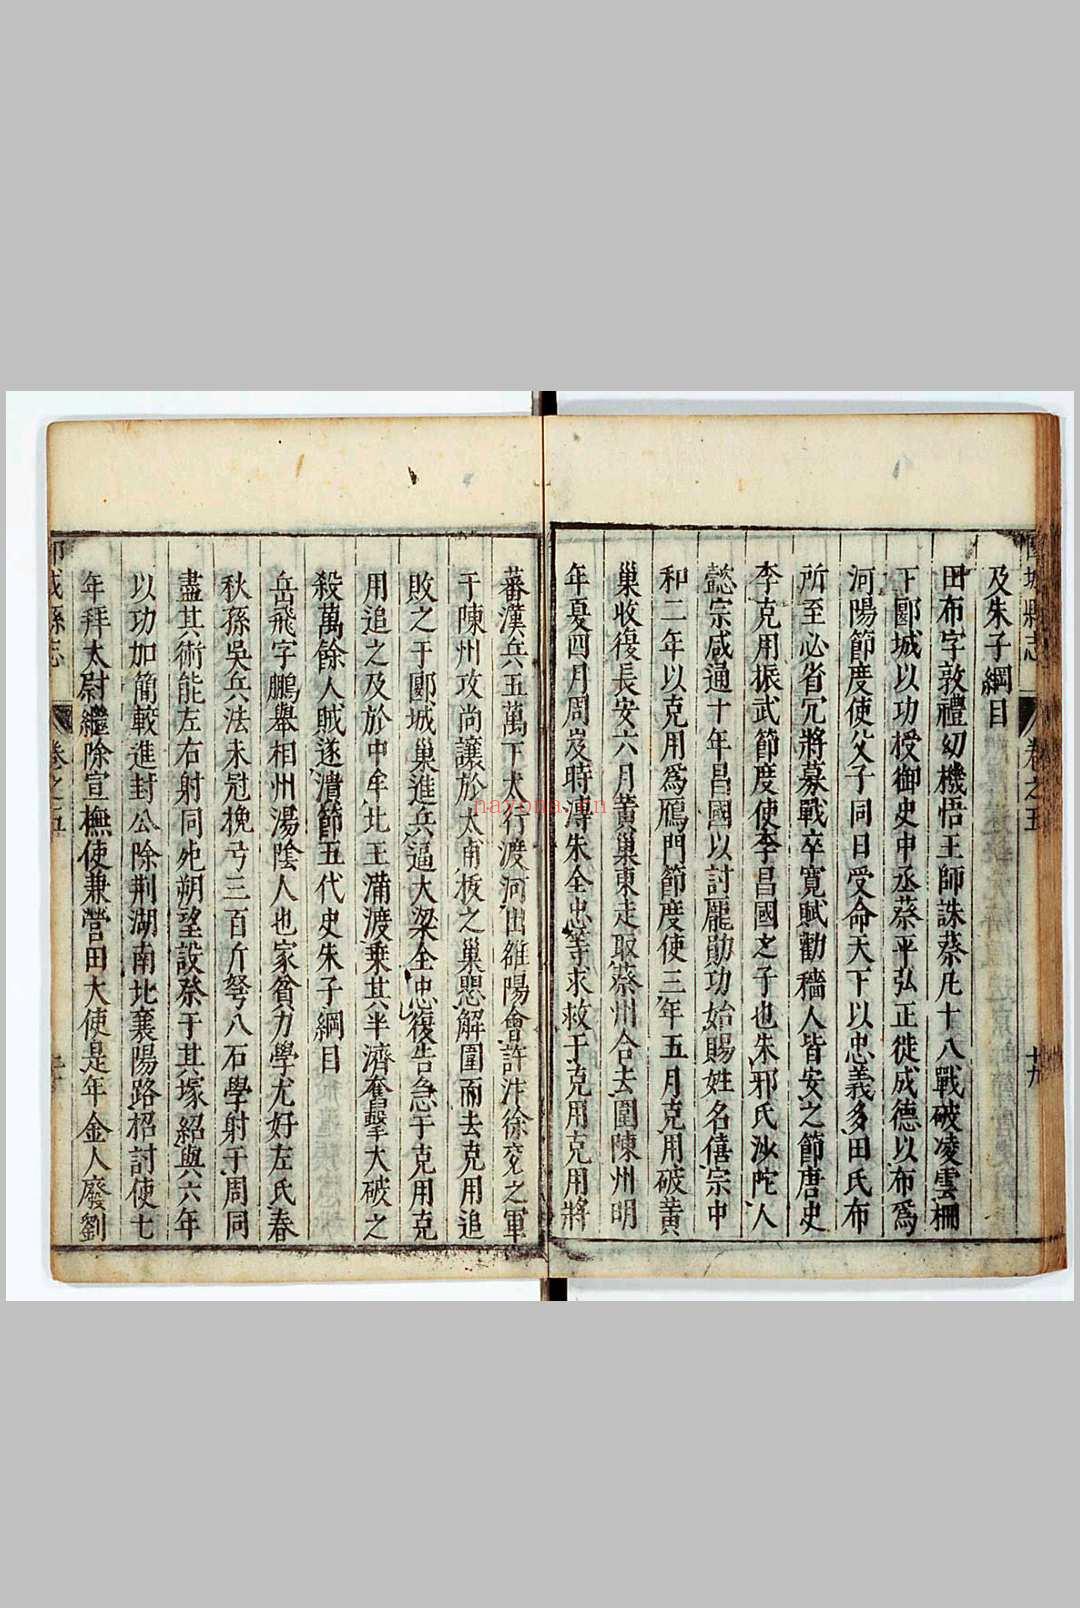 城縣志
卷之五
十九
及朱子綱目
田布字敦禮幼機悟王師誅蔡凡十八戰破凌雲柵
下郾城以功授御史中丞蔡平弘正徙成德以布爲
河陽節度使父子同日受命天下以忠義多田氏布
所至必省冗將募戰卒寬賦勸穡人皆安之節唐史
李克用振武節度使李昌國之子也朱邪氏沙陀人
懿宗咸通十年昌國以討龐勛功始賜姓名僖宗中
和二年以克用爲鴈門節度使三年五月克用破黄
巢收復長安六月黄巢東走取蔡州合去圍陳州明
年夏四月周岌時溥朱全忠等求救于克用克用將
蕃漢兵五萬下太行渡河出雒陽會許汴徐兗之軍
于陳州攻尚讓於太甫柭之巢恐解圍而去克用追
敗之于郾城巢進兵逼大梁全忠復告急于克用克
用追之及於中牟北王滿渡乗其半濟奮擊大破之
殺萬餘人賊遂潰節五代史朱子綱目
岳飛字鵬舉相州湯陰人也家貧力學尤好左氏春
秋孫吳兵法未冠挽弓三百斤弩八石學射于周同
盡其術能左右射同死朔望設祭于其塚紹興六年
以功加簡較進封公除荆湖南北襄陽路招討使七
年拜太尉繼除宣撫使兼營田大使是年金人廢劉
城縣志
卷之五
nayona.cn